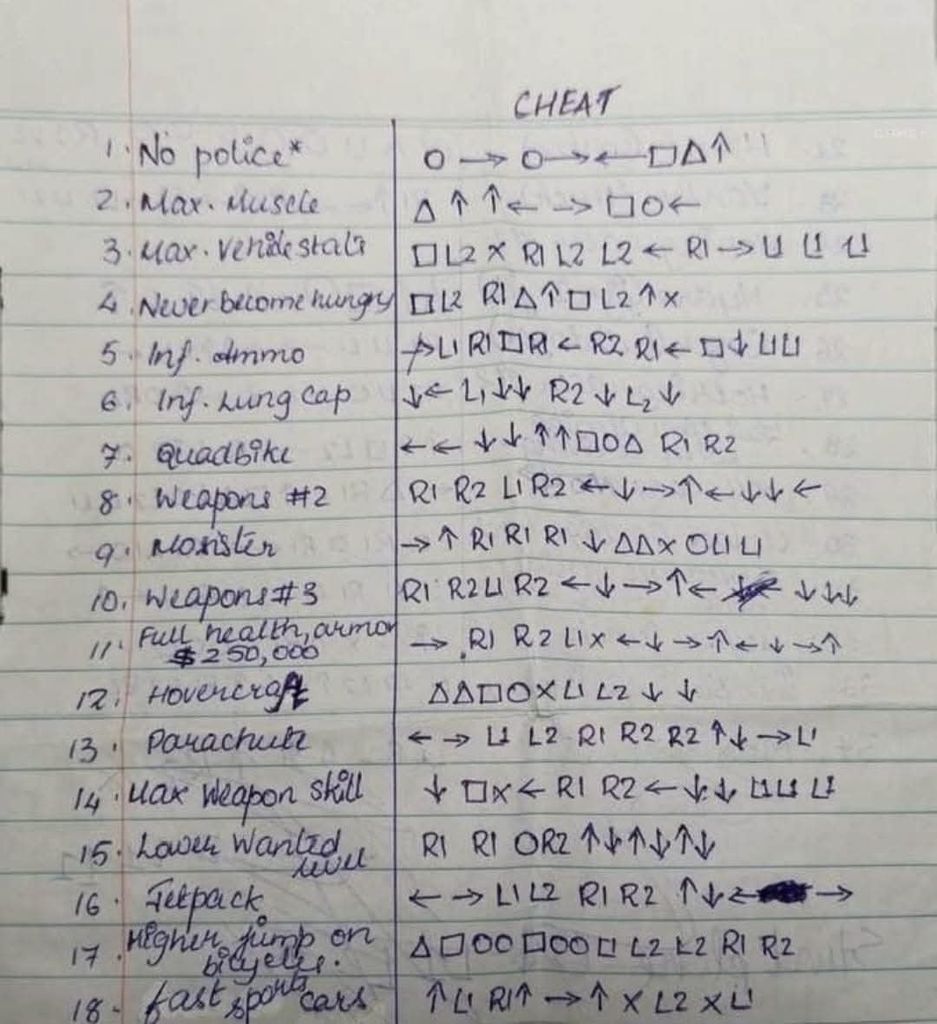 CHEAT
1. No police* ○ → ○ → ← □ △ ↑
2. Max. Muscle △ ↑ ↑ ← → □ ○ ←
3. Max. Vehicle stats □ L2 × R1 L2 L2 ← R1 → L1 L1 L1
4. Never become hungry □ L2 R1 △ ↑ □ L2 ↑ ×
5. Inf. Ammo → L1 R1 □ R1 ← R2 R1 ← □ ↓ L1 L1
6. Inf. Lung cap ↓ ← L1 ↓ ↓ R2 ↓ L2 ↓
7. Quadbike ← ← ↓ ↓ ↑ ↑ □ ○ △ R1 R2
8. Weapons #2 R1 R2 L1 R2 ← ↓ → ↑ ← ↓ ↓ ←
9. Monster → ↑ R1 R1 R1 ↓ △ △ × ○ L1 L1
10. Weapons #3 R1 R2 L1 R2 ← ↓ → ↑ ← ↓ ↓ ↓
11. Full health, armor → R1 R2 L1 × ← ↓ → ↑ ← ↓ → ↑
$ 250,000
12. Hovercraft △ △ □ ○ × L1 L2 ↓ ↓
13. Parachute ← → L1 L2 R1 R2 R2 ↑ ↓ → L1
14. Max Weapon skill ↓ □ × ← R1 R2 ← ↓ ↓ L1 L1 L1
15. Lower Wanted R1 R1 ○ R2 ↑ ↓ ↑ ↓ ↑ ↓
level
16. Jetpack ← → L1 L2 R1 R2 ↑ ↓ ← →
17. Higher jump on △ □ ○ ○ □ ○ ○ □ L2 L2 R1 R2
bicycles.
18. fast sports cars ↑ L1 R1 ↑ → ↑ × L2 × L1